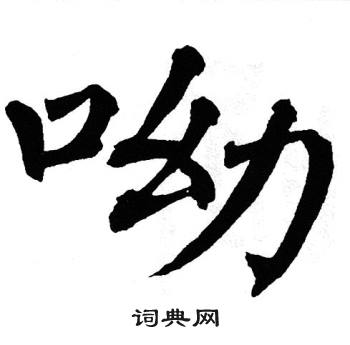 呦
词典网